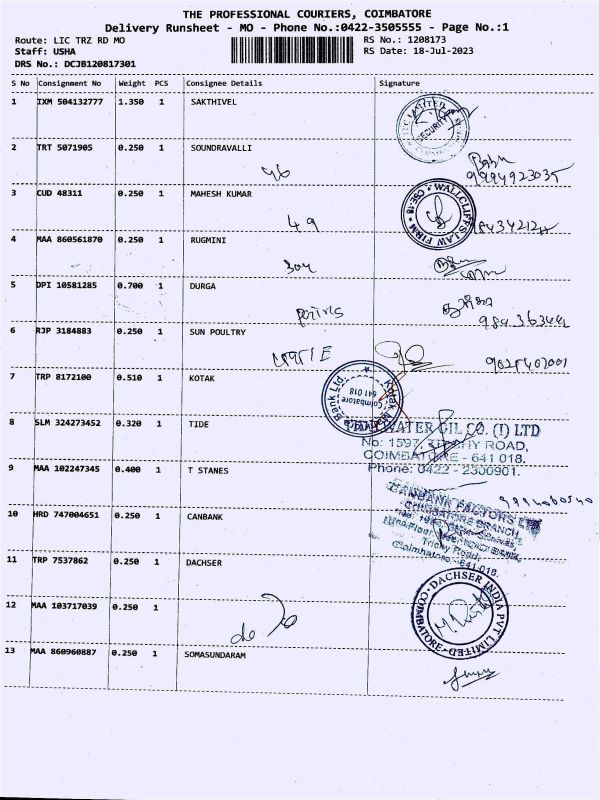 THE PROFESSIONAL COURIERS, COIMBATORE
Delivery Runsheet - MO - Phone No.:0422-3505555 - Page No.:1
Route: LIC TRZ RD MO
RS No.: 1208173
Staff: USHA
RS Date: 18-Jul-2023
DRS No.: DCJB120817301
S No Consignment No Weight PCS Consignee Details Signature
1 IXM 504132777 1.350 1 SAKTHIVEL
SECURITY
2 TRT 5071905 0.250 1 SOUNDRAVALLI
46
Babu
9994923035
3 CUD 48311 0.250 1 MAHESH KUMAR
49
WALLCLIFFS LAW FIRM
CSE-18
4 MAA 860561870 0.250 1 RUGMINI
304
5 DPI 10581285 0.700 1 DURGA
6 RJP 3184883 0.250 1 SUN POULTRY
7 TRP 8172100 0.510 1 KOTAK
Bank Ltd.
Coimbatore
641 018
8 SLM 324273452 0.320 1 TIDE
WATER OIL CO. (I) LTD
No: 1597, TRICHY ROAD,
COIMBATORE - 641 018.
Phone: 0422 - 2300901.
9 MAA 102247345 0.400 1 T STANES
10 HRD 747004651 0.250 1 CANBANK
CANBANK FACTORS LTD
COIMBATORE BRANCH
Tricky Road,
Coimbatore - 641 018.
11 TRP 7537862 0.250 1 DACHSER
DACHSER INDIA PVT LIMITED
COIMBATORE
12 MAA 103717039 0.250 1
13 MAA 860960887 0.250 1 SOMASUNDARAM